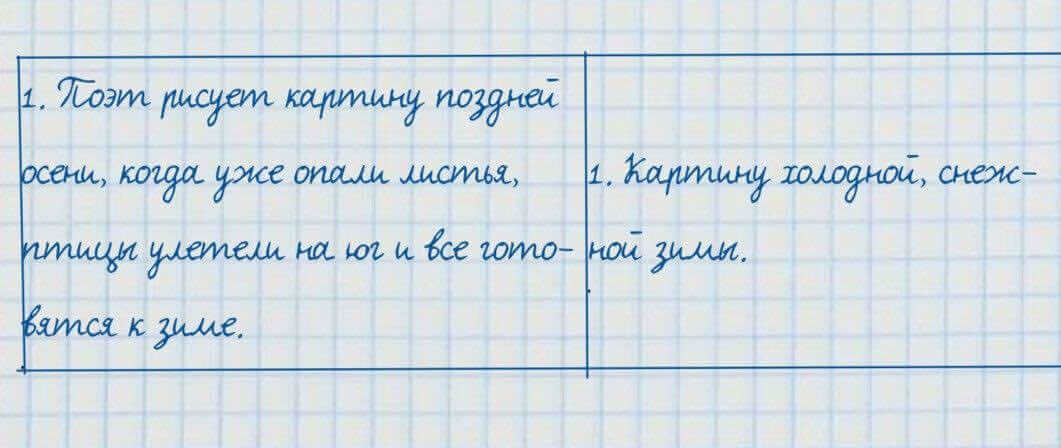 1. Поэт рисует картину поздней
осени, когда уже опали листья,
птицы улетели на юг и все гото-
вятся к зиме.
1. Картину холодной, снеж-
ной зимы.